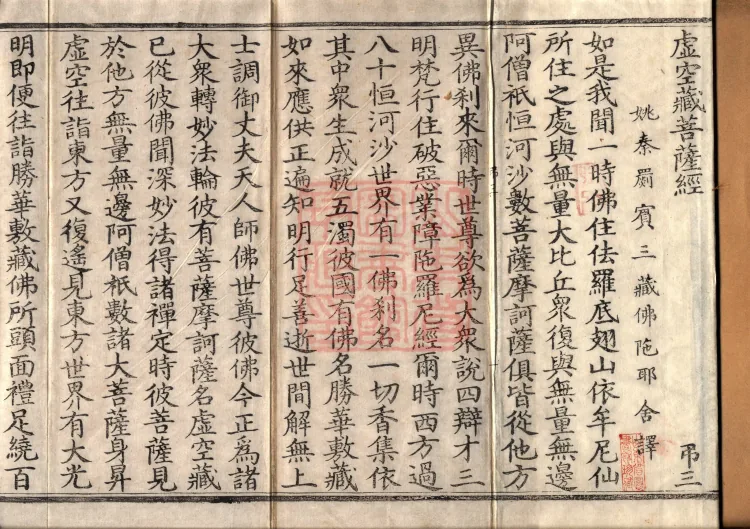 虛空藏菩薩經 弔三
姚秦罽賓三藏佛陁耶舍譯
如是我聞一時佛住佉羅底翅山依牟尼仙
所住之處與無量大比丘衆復與無量無邊
阿僧祇恒河沙數菩薩摩訶薩俱皆從他方
異佛剎來爾時世尊欲為大衆說四辯才三
明梵行住破惡業障陁羅尼經爾時西方過
八十恒河沙世界有一佛剎名一切香集依
其中衆生成就五濁彼國有佛名勝華敷藏
如來應供正遍知明行足善逝世間解無上
士調御丈夫天人師佛世尊彼佛今正爲諸
大衆轉妙法輪彼有菩薩摩訶薩名虛空藏
已從彼佛聞深妙法得諸禪定時彼菩薩見
於他方無量無邊阿僧祇數諸大菩薩身昇
虛空往詣東方又復遙見東方世界有大光
明即便往詣勝華敷藏佛所頭面禮足繞百